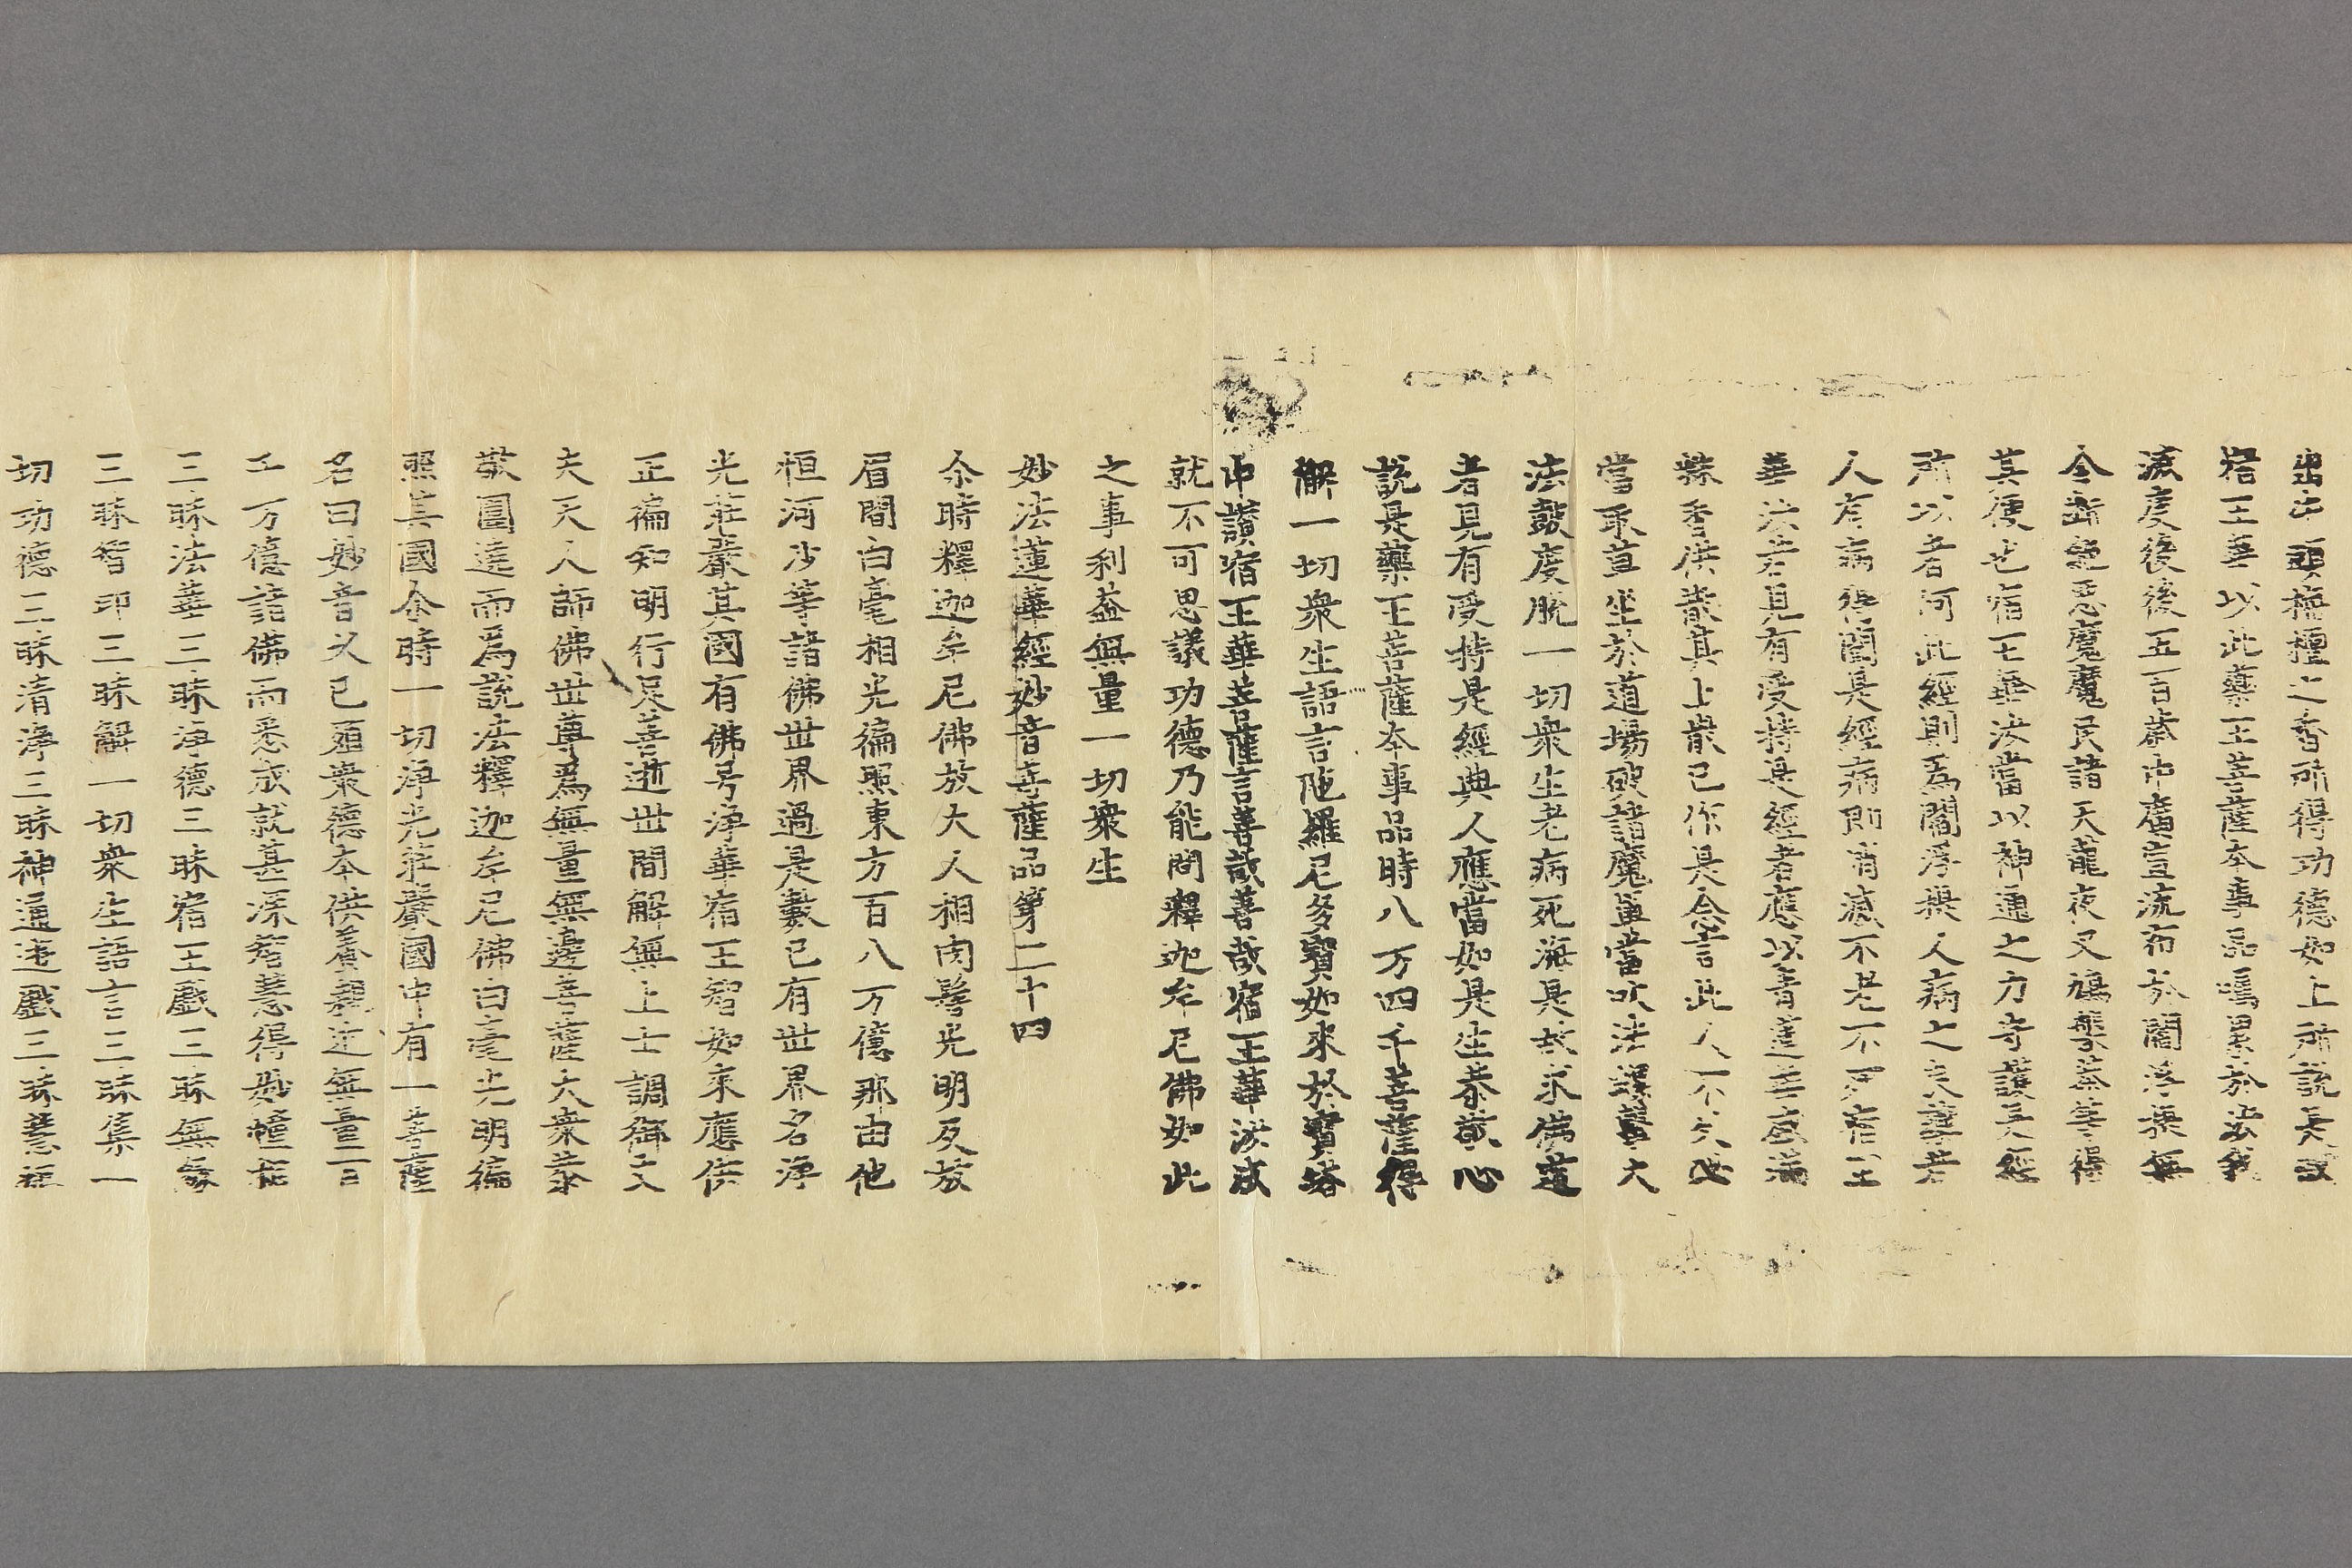 出牛頭栴檀之香所得功德如上所說是故
宿王華以此藥王菩薩本事品囑累於汝我
滅度後後五百歲中廣宣流布於閻浮提無
令斷絕惡魔魔民諸天龍夜叉鳩槃荼等得
其便也宿王華汝當以神通之力守護是經
所以者何此經則爲閻浮提人病之良藥若
人有病得聞是經病即消滅不老不死宿王
華汝若見有受持是經者應以青蓮華盛滿
粖香供散其上散已作是念言此人不久必
當取草坐於道場破諸魔軍當吹法螺擊大
法鼓度脫一切衆生老病死海是故求佛道
者見有受持是經典人應當如是生恭敬心
說是藥王菩薩本事品時八万四千菩薩得
解一切衆生語言陁羅尼多寶如來於寶塔
中讃宿王華菩薩言善哉善哉宿王華汝成
就不可思議功德乃能問釋迦牟尼佛如此
之事利益無量一切衆生
妙法蓮華經妙音菩薩品第二十四
尒時釋迦牟尼佛放大人相肉髻光明及放
眉間白毫相光徧照東方百八万億那由他
恒河沙等諸佛世界過是數已有世界名淨
光莊嚴其國有佛号淨華宿王智如來應供
正徧知明行足善逝世間解無上士調御丈
夫天人師佛世尊爲無量無邊菩薩大衆恭
敬圍遶而爲說法釋迦牟尼佛白毫光明徧
照其國尒時一切淨光莊嚴國中有一菩薩
名曰妙音乆已殖衆德本供養親近無量百
千万億諸佛而悉成就甚深智慧得妙幢相
三昧法華三昧淨德三昧宿王戲三昧無緣
三昧智印三昧解一切衆生語言三昧集一
切功德三昧清淨三昧神通遊戲三昧慧炬